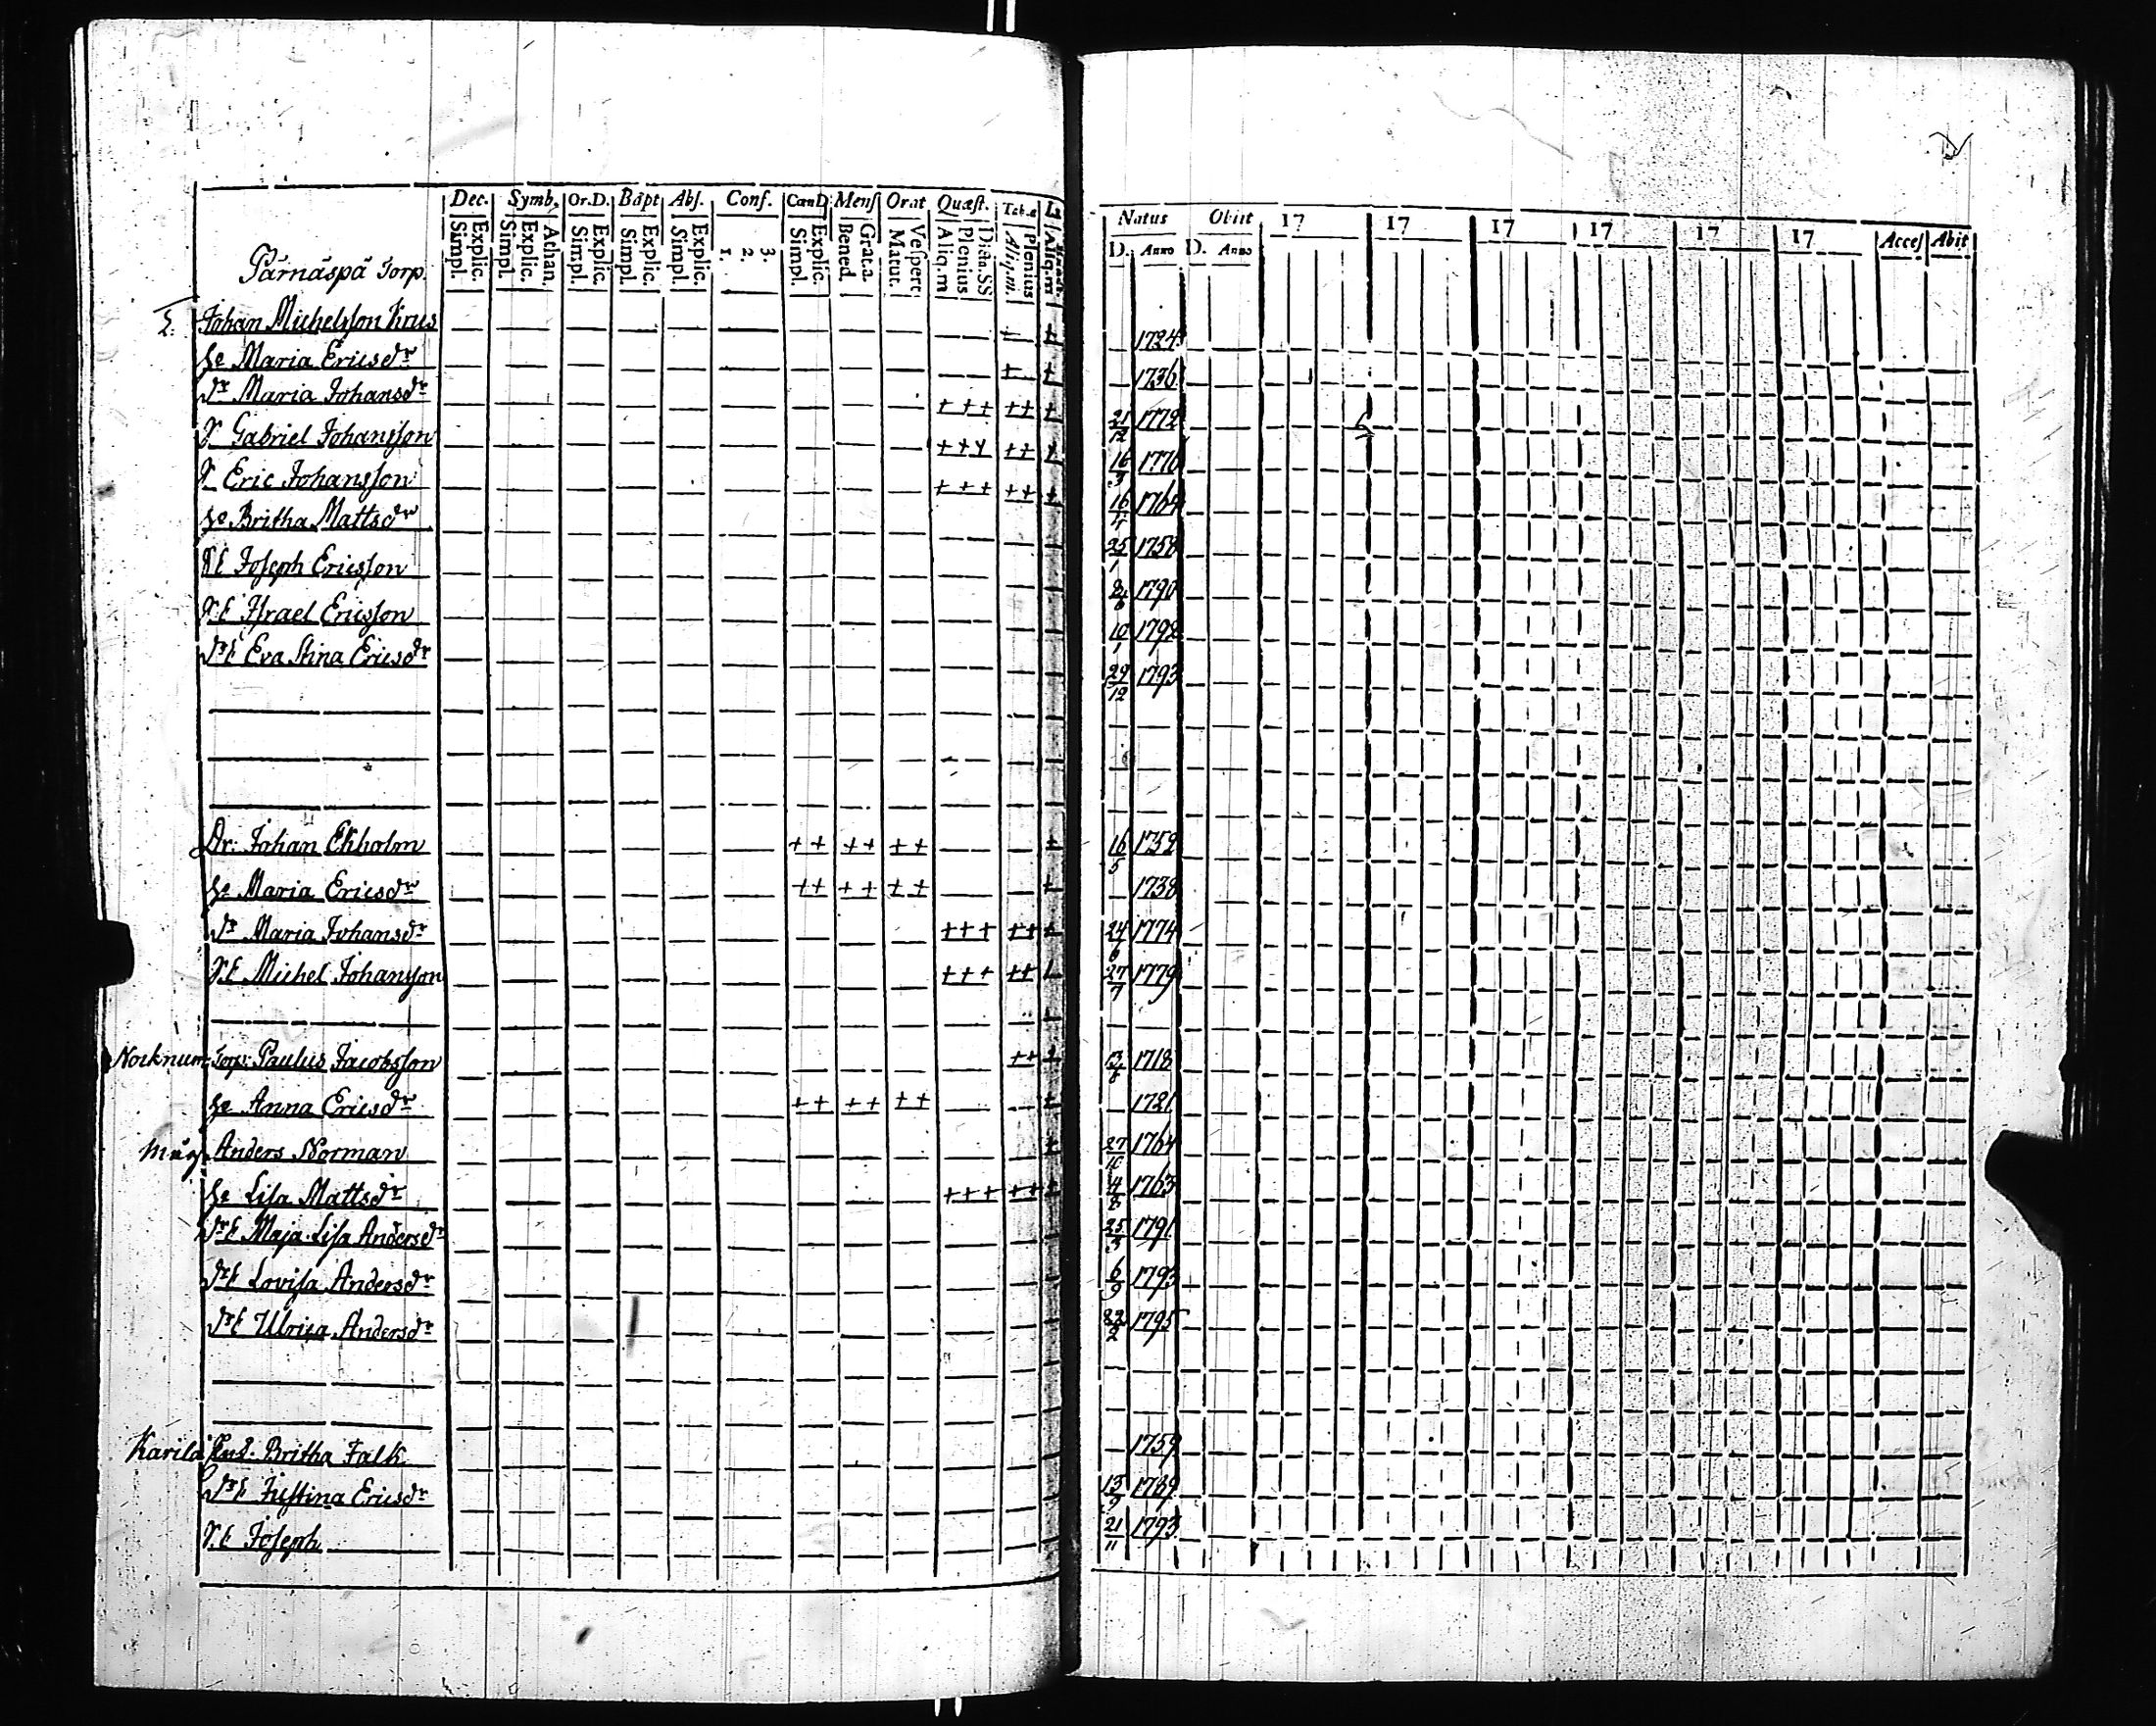 Dec. Symb. Or.D. Bapt Abſ. Conf. CœnD Menſ Orat Quæſt. Tab.æ
Simpl. Explic. Simpl. Explic. Athan. Simpl. Explic. Simpl. Explic. Simpl. Explic. 1. 2. 3. Simpl. Explic. Bened. Grat.a. Matut. Veſpert Aliq.m Plenius Dicta.SS Aliq.m. Plenius Aliq.m
Natus Obiit 17 17 17 17 17 17 Acceſ Abit
D. Anno D. Anno
Pärnäspä Torp.
Johan Michelsson Krus + + 1724
He Maria Ericsdr + + 1736
Dr Maria Johansdr +++ ++ + 21/12 1772
S. Gabriel Johansson +++ ++ + 16/3 1776
S. Eric Johansson +++ ++ + 16/4 1764
He Britha Mattsdr 25/1 1758
S E Joseph Ericsson 1790
S. E Israel Ericsson 10/1 1792
Dr E Eva Stina Ericsdr 29/12 1793
Dr: Johan Ekholm ++ ++ ++ + 16/5 1732
He Maria Ericsdr ++ ++ ++ + 1738
Dr Maria Johansdr +++ ++ + 24/6 1774
S. E Michel Johansson +++ ++ + 27/7 1779
Norknum Torp: Paulus Jacobsson ++ + 1718
He Anna Ericsdr ++ ++ ++ + 1721
Måg. Anders Norman + 27/10 1764
He Lisa Mattsdr +++ ++ + 4/8 1763
Dr E Maja Lisa Andersdr 25/3 1791
Dr E Lovisa Andersdr 6/9 1793
Dr E Ulrica Andersdr 22/2 1795
Karila Britha Falk 1759
Dr E Justina Ericsdr 13/9 1789
S. E Joseph 21/11 1793